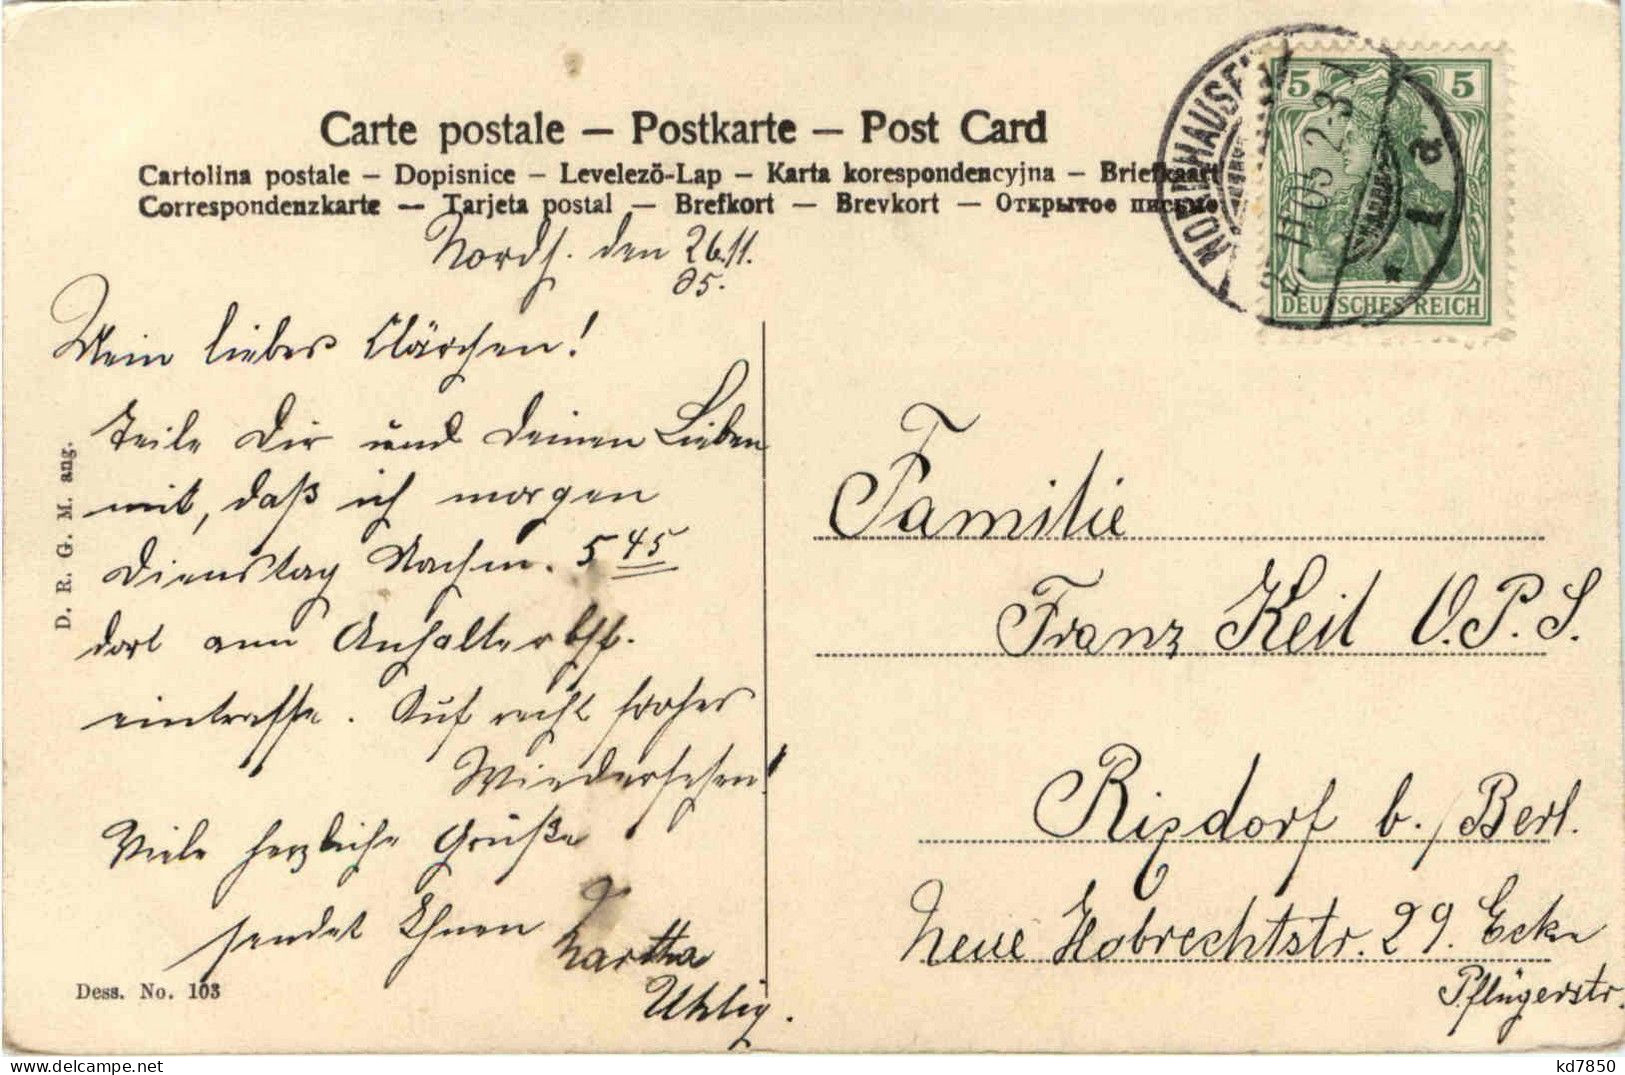 Carte postale — Postkarte — Post Card
Cartolina postale — Dopisnice — Levelező-Lap — Karta korespondencyjna — Briefkaart
Correspondenzkarte — Tarjeta postal — Brefkort — Brevkort — Открытое письмо
NORDHAUSEN
11 05 2-3
1 a
*
5 5
DEUTSCHES REICH
Nordh. den 26.11.
05.
Mein liebes Clärchen!
Teile Dir und Deinen Lieben
mit, daß ich morgen
Dienstag Nachm. 5 45
dort am Anhalter Bhf.
eintreffe. Auf recht frohes
Wiedersehen!
Viele herzliche Grüße
sendet Ihnen
Martha
Uhlig.
D. R. G. M. ang.
Dess. No. 103
Familie
Franz Keil O.P.S.
Rixdorf b./Berl.
Neue Hobrechtstr. 29. Ecke
Pflügerstr.
kd7850